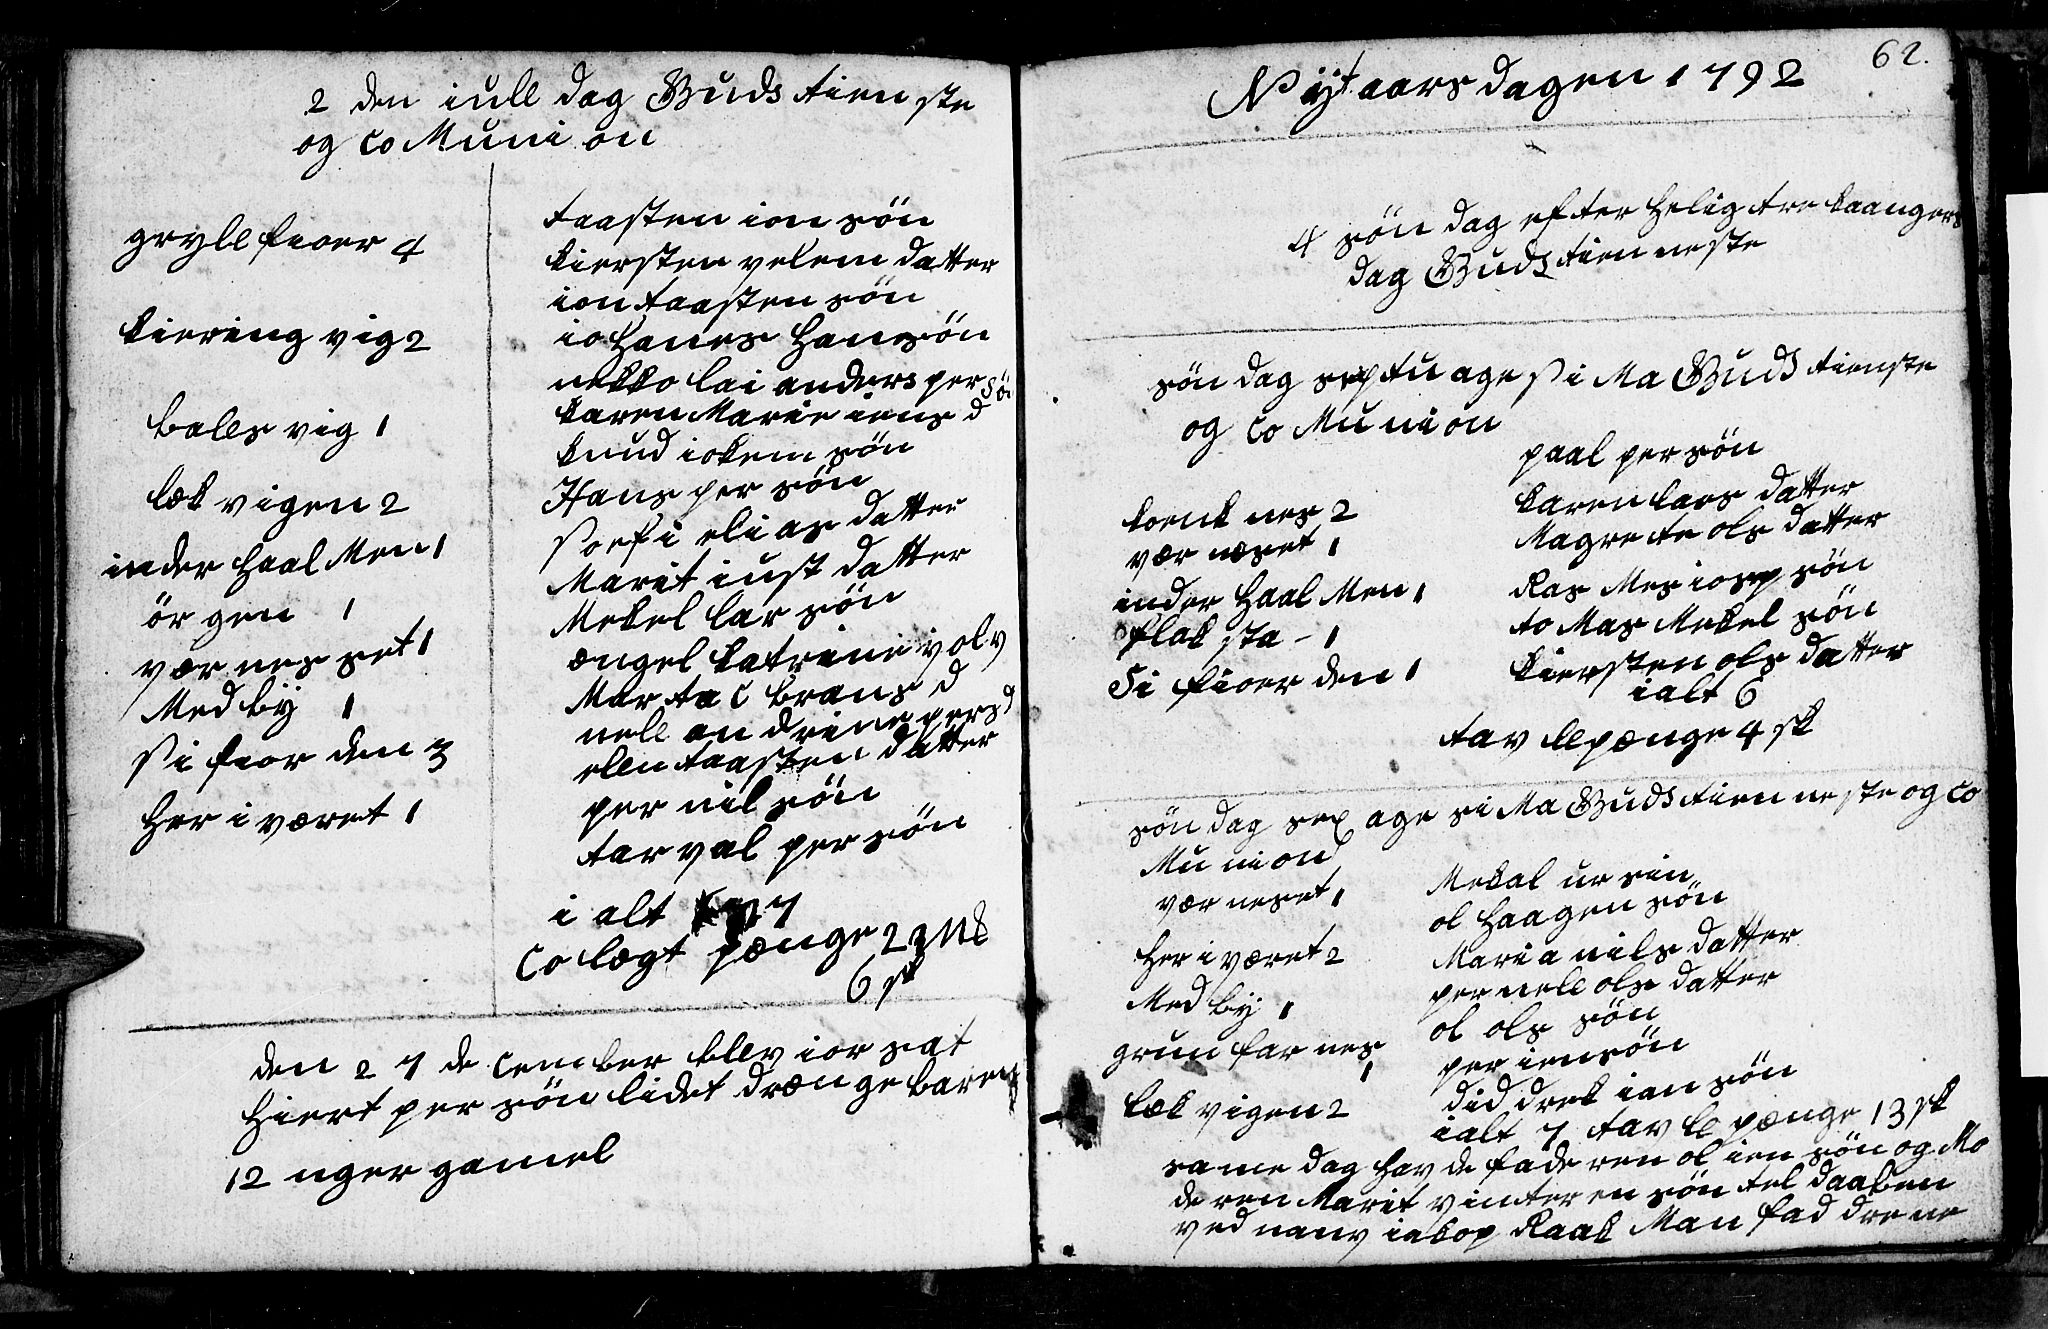 2 den iull dag Guds tien ste
og co Muni on
gryll fioer 4
kiering vig 2
bales vig 1
læk vigen 2
inder haal Men 1
ör gen 1
vær nes set 1
Med bÿ 1
si fior den 3
her i været 1
taasten ion søn
kiersten velem datter
ion taasten søn
io hanes hansøn
nekko lai anders per sö
karen Marie iens d
knud iokem søn
Hans per søn
soefi elias datter
Marit iust datter
Mekel lar søn
ængel katrine volv
Mar ta c brans d
nell an drine pers d
elen taasten datter
per nil søn
tar val per søn
i alt 17
Co lægt pænge 2 Mk
6 sk
den 27 de cember blev ior sat
hiert per søn lidet drænge baren
12 uger gamel
62.
Nÿt aars dagen 1792
4 søn dag efter helig tre kaangers
dag Guds tien neste
søn dag sep tu age si Ma Guds tienste
og co Mu ni on
koenk nes 2
vær næset 1
inder haal Men 1
flak sta - 1
Si fioer den 1
paal per søn
karen lars datter
Magre te ols datter
Ras Mes iosep søn
to Mas Mekel søn
kiersten ols datter
ialt 6
tav le pænge 4 sk
søn dag sex age si Ma Guds tien neste og co
Mu ni on
vær neset 1
her i været 2
Med bÿ 1
grun far nes
1
læk vigen 2
Mekal ur sin
ol haagen søn
Maria nils datter
per nell ols datter
ol ols søn
per iensøn
did drek ian søn
ialt 7 tav le pænge 13 sk
same dag hav de fade ren ol ien søn og Mo
de ren Marit vinter en søn tel daaben
ved nanv iakop Raak Man fad drene